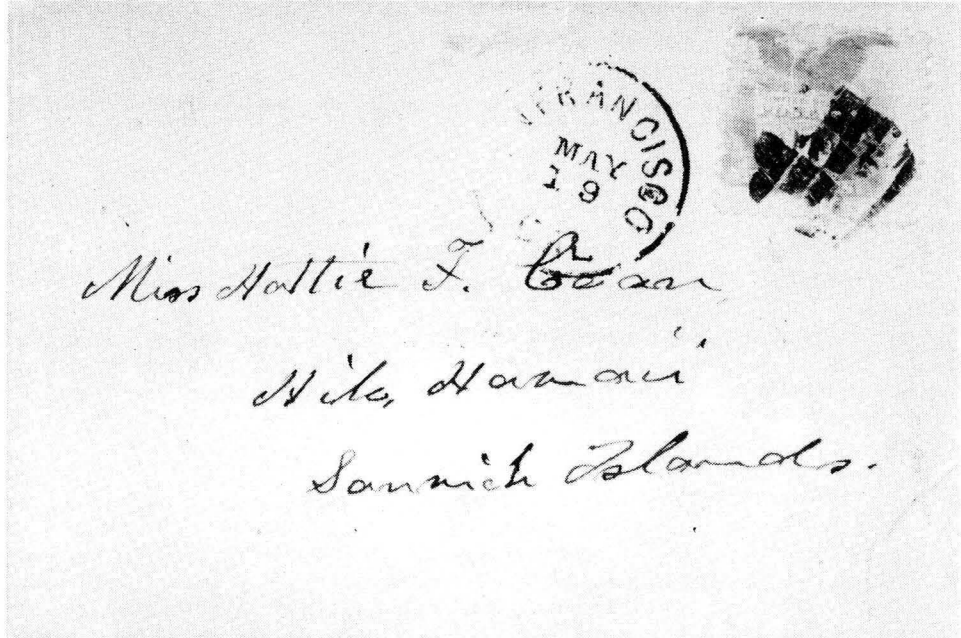 FRANCISCO
MAY
19
Miss Hattie F. Coan
Hilo, Hawaii
Sanwich Islands.